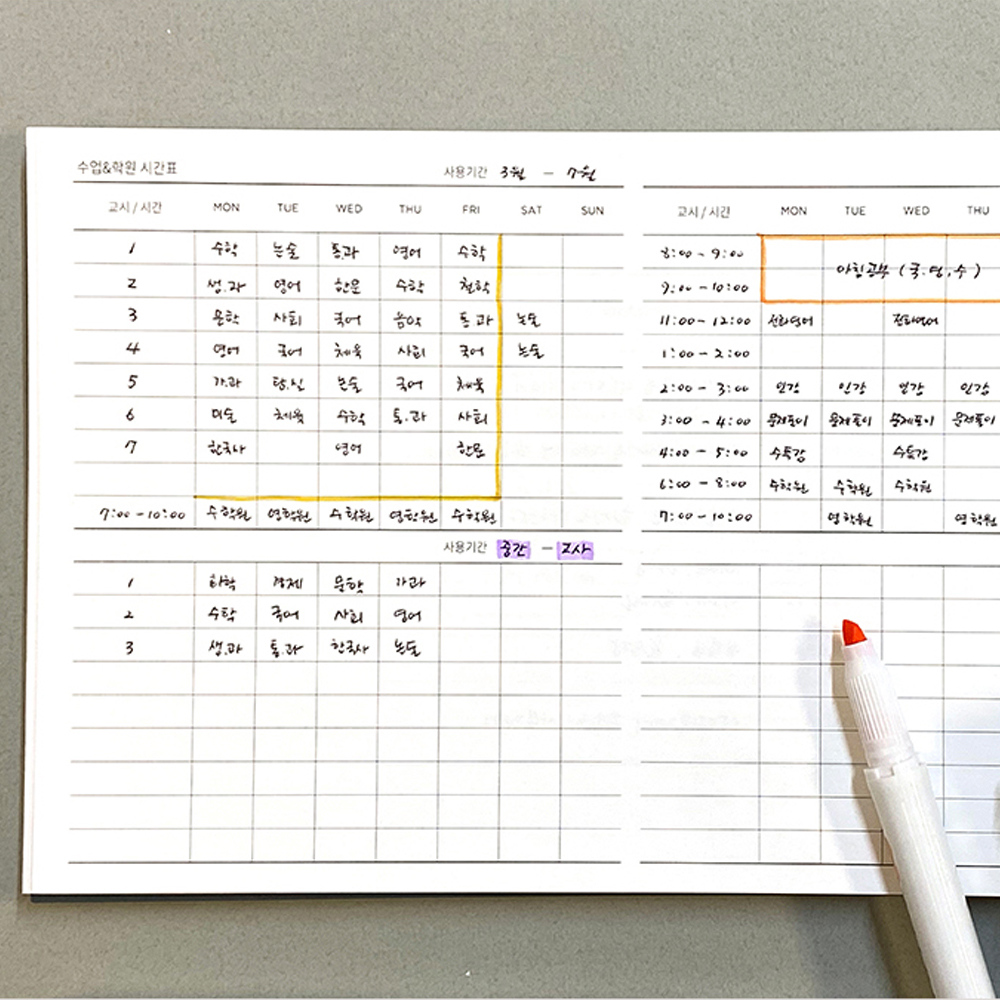 수업&학원 시간표 사용기간 3월 - 7월
교시 / 시간 MON TUE WED THU FRI SAT SUN
1 수학 논술 통과 영어 수학
2 생.과 영어 한문 수학 철학
3 문학 사회 국어 음악 통과 논술
4 영어 국어 체육 사회 국어 논술
5 가.과 논술 국어 체육
6 미술 체육 수학 통.과 사회
7 한국사 영어 한문
7:00 - 10:00 수학원 영학원 수학원 영학원 수학원
사용기간 중간 - 고사
1 화학 경제 문학 가과
2 수학 국어 사회 영어
3 생.과 통.과 한국사 논술
교시 / 시간 MON TUE WED THU
8:00 - 9:00
아침공부 ( 국.영,수 )
9:00 - 10:00
11:00 - 12:00 전화영어 전화영어
1:00 - 2:00
2:00 - 3:00 인강 인강 인강 인강
3:00 - 4:00 문제풀이 문제풀이 문제풀이 문제풀이
4:00 - 5:00 수특강 수특강
6:00 - 8:00 수학원 수학원 수학원
7:00 - 10:00 영학원 영학원